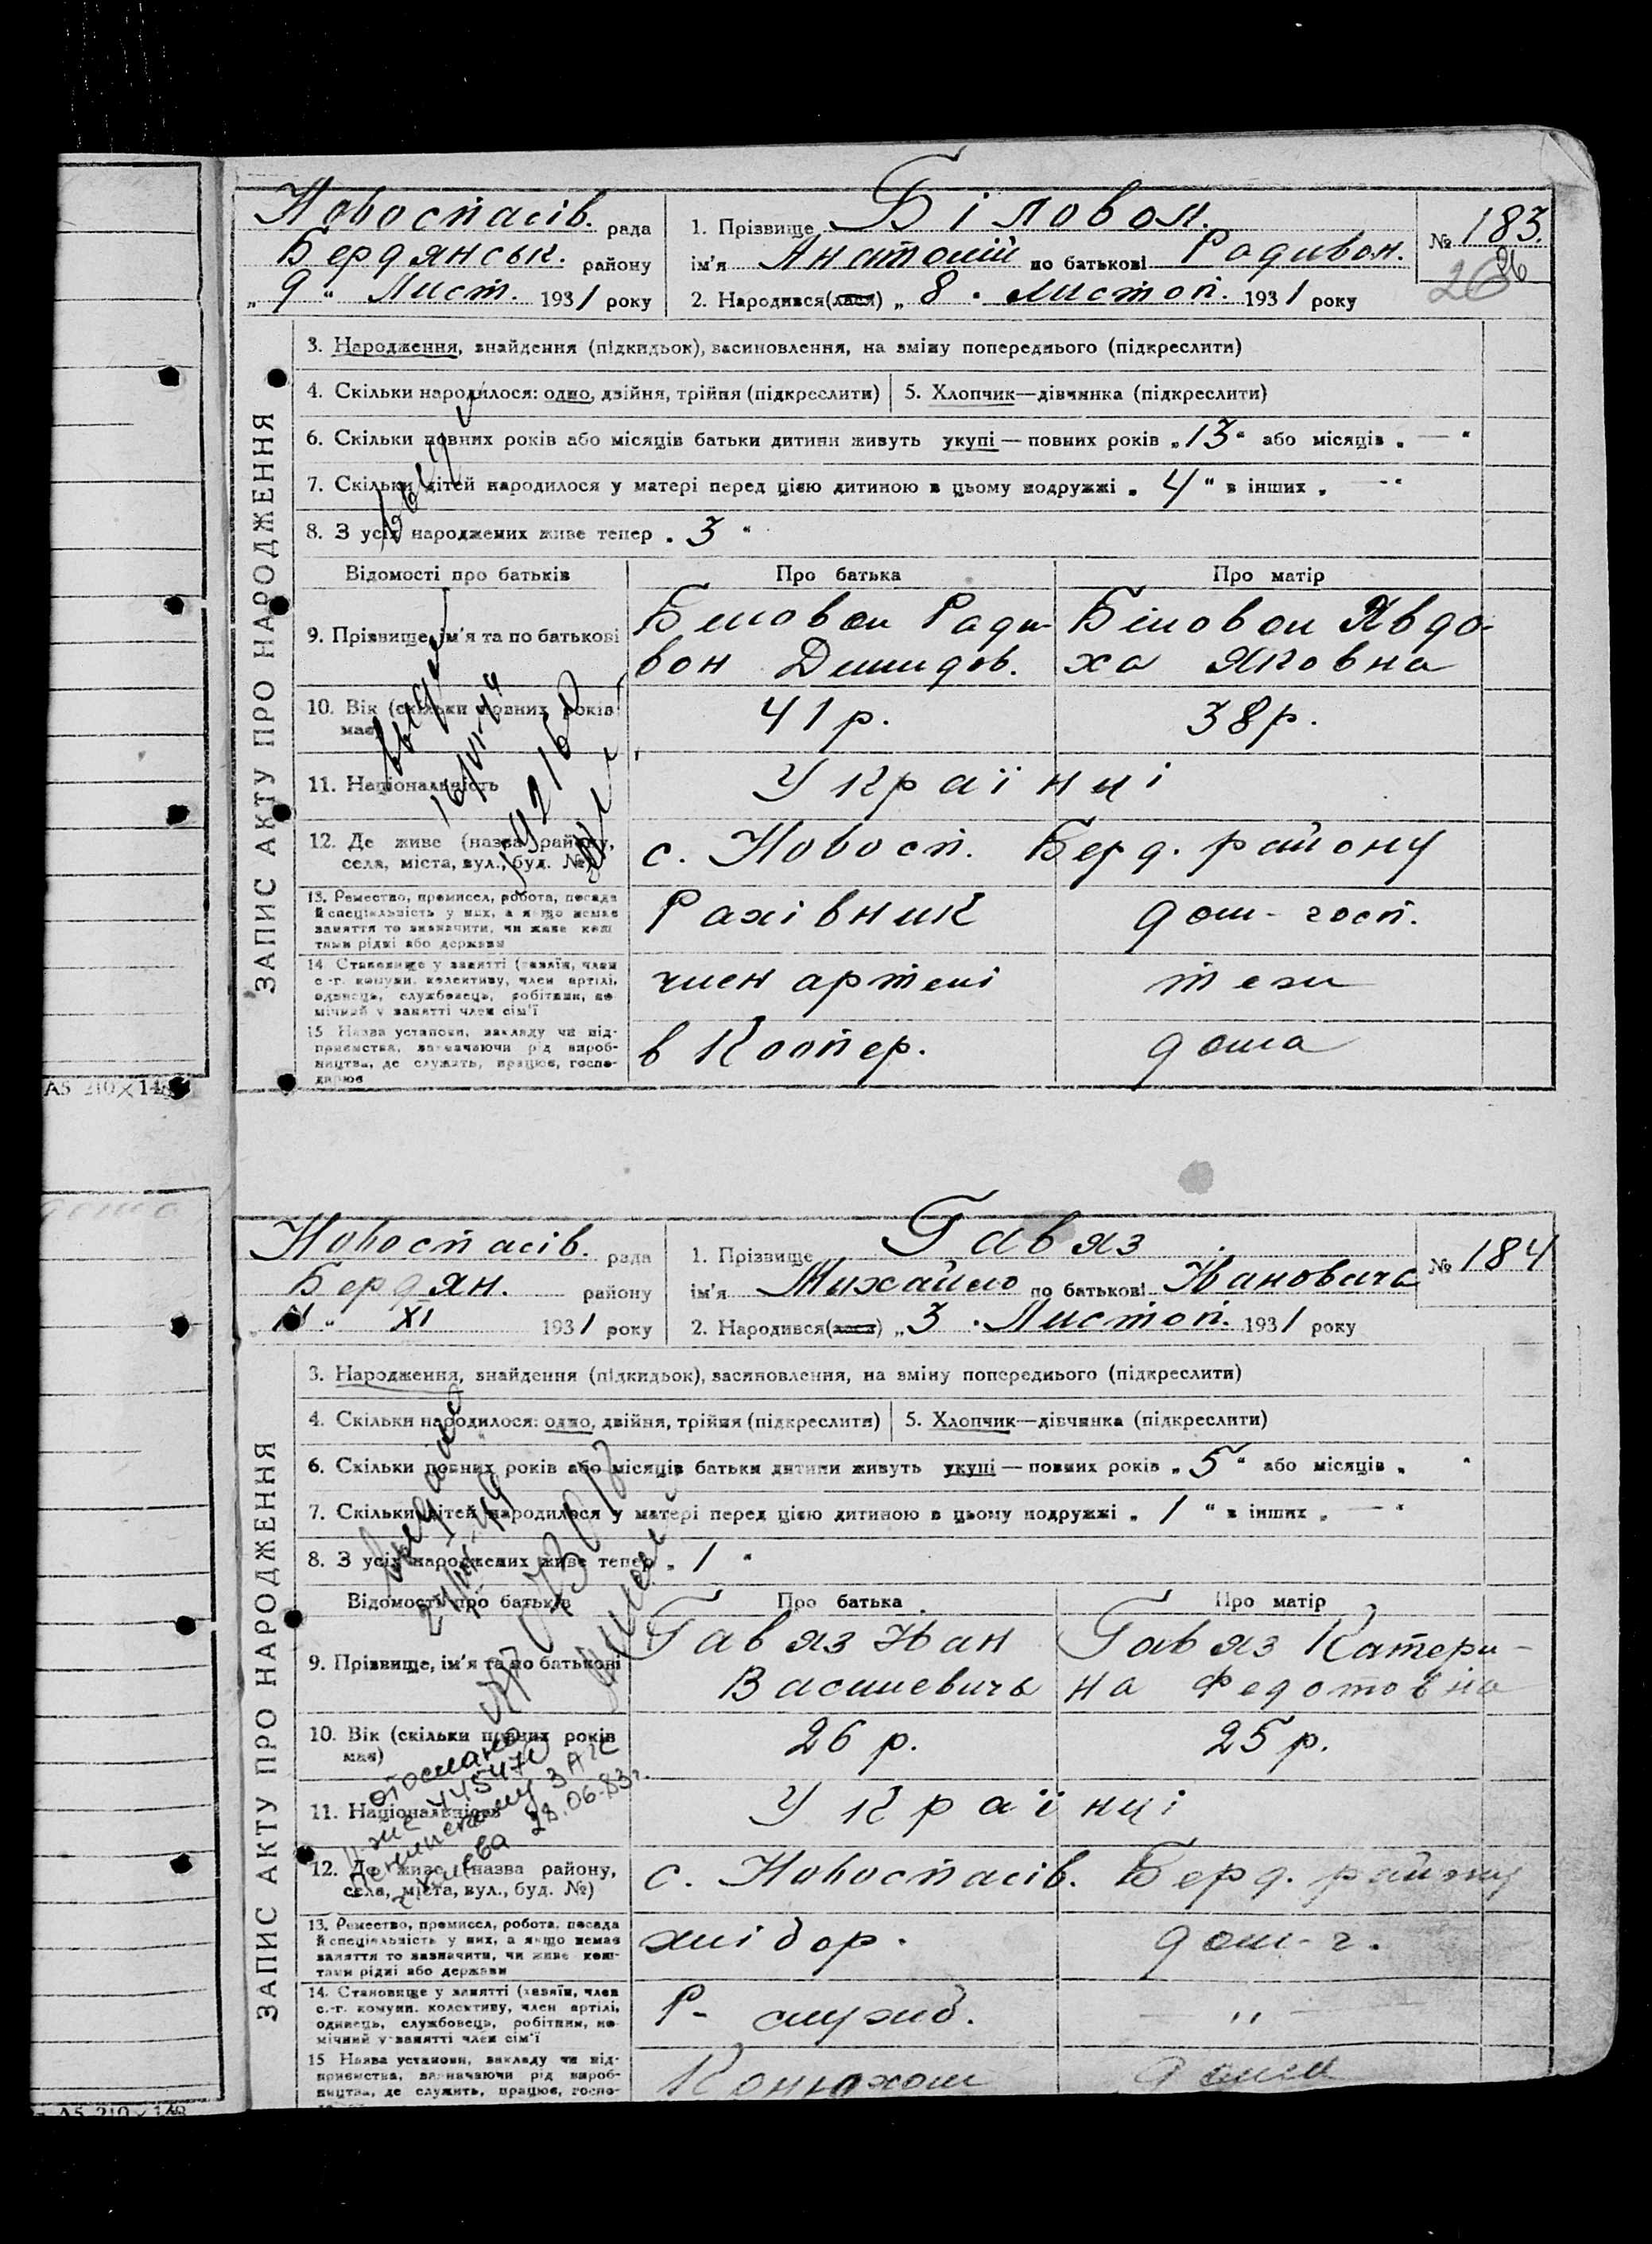 Новоспасів. рада
Бердянськ. району
„ 9 “ Лист. 1931 року
1. Прізвище Біловол.
ім'я Анатолій по батькові Радивон.
2. Народився(лася) „ 8 “ листоп. 1931 року
№ 183.
26
26
ЗАПИС АКТУ ПРО НАРОДЖЕННЯ
3. Народження, знайдення (підкидьок), засиновлення, на зміну попереднього (підкреслити)
4. Скільки народилося: одно, двійня, трійня (підкреслити) 5. Хлопчик—дівчинка (підкреслити)
6. Скільки повних років або місяців батьки дитини живуть укупі — повних років „ 13 “ або місяців „ — “
7. Скільки дітей народилося у матері перед цією дитиною в цьому подружжі „ 4 “ в інших „ — “
8. З усіх народжених живе тепер „ 3 “
Відомості про батьків Про батька Про матір
9. Прізвище, ім'я та по батькові
Біловол Ради-
вон Демидов.
Біловол Явдо-
ха Яковна
10. Вік (скільки повних років має)
41 р. 38 р.
11. Національність
Українці
12. Де живе (назва району,
села, міста, вул., буд. №)
с. Новосп. Берд. району
13. Ремество, промисел, робота, посада
й спеціяльність у них, а якщо немає
заняття то зазначити, чи живе кош-
тами рідні або держави
Рахівник дом-госп.
14. Становище у занятті (хазяїн, член
с.-г. комуни, колективу, член артілі,
одинець, службовець, робітник, по-
мічний у занятті член сім'ї
член артелі теж
15. Назва установи, закладу чи під-
приємства, зазначаючи рід вироб-
ництва, де служить, працює, госпо-
дарює
в Коопер. дома
А5 210×148
Новоспасів. рада
Бердян. району
11 “ XI 1931 року
1. Прізвище Гавяз
ім'я Михайло по батькові Іванович
2. Народився(лася) „ 3 “ Листоп. 1931 року
№ 184
ЗАПИС АКТУ ПРО НАРОДЖЕННЯ
3. Народження, знайдення (підкидьок), засиновлення, на зміну попереднього (підкреслити)
4. Скільки народилося: одно, двійня, трійня (підкреслити) 5. Хлопчик—дівчинка (підкреслити)
6. Скільки повних років або місяців батьки дитини живуть укупі — повних років „ 5 “ або місяців „ “
7. Скільки дітей народилося у матері перед цією дитиною в цьому подружжі „ 1 “ в інших „ — “
8. З усіх народжених живе тепер „ 1 “
Відомості про батьків Про батька Про матір
9. Прізвище, ім'я та по батькові
Гавяз Іван
Василевичь
Гавяз Катери-
на Федотовна
10. Вік (скільки повних років має)
26 р. 25 р.
отослано
Ленинскому ЗАГС
28.06.83г.
11. Національність
Українці
12. Де живе (назва району,
села, міста, вул., буд. №)
с. Новоспасів. Берд. району
13. Ремество, промисел, робота, посада
й спеціяльність у них, а якщо немає
заняття то зазначити, чи живе кош-
тами рідні або держави
хлібор. дом-г.
14. Становище у занятті (хазяїн, член
с.-г. комуни. колективу, член артілі,
одинець, службовець, робітник, по-
мічний у занятті член сім'ї
Р- служб. — „ —
15 Назва установи, закладу чи під-
приємства, зазначаючи рід вироб-
ництва, де служить, працює, госпо-
Конюхом дома
А5 210×148